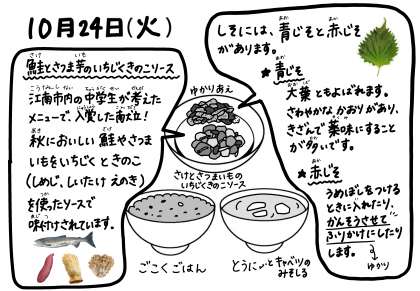 10月24日(火)
鮭とさつま芋のいちじくきのこソース
江南市内の中学生が考えた
メニューで、入賞した献立!
秋においしい 鮭やさつま
いもをいちじく ときのこ
(しめじ、しいたけ えのき)
を使ったソースで
味付けされています。
ゆかりあえ
さけとさつまいもの
いちじくきのこソース
ごこくごはん
とうにゅうとキャベツの
みそしる
しそには、青じそと赤じそ
があります。
★青じそ
大葉ともよばれます。
さわやかなかおりがあり、
きざんで薬味にすること
が多いです。
★赤じそ
うめぼしをつける
ときに入れたり、
かんそうさせて
ふりかけにしたり
します。
ゆかり